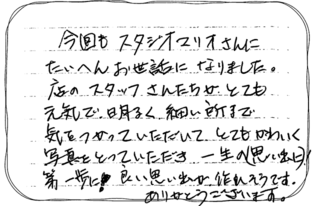 今回も スタジオマリオさんに
たいへん お世話に なりました。
店の スタッフ さんたちが とても
元気で 明るく 細い所まで
気をつかっていただいて とても かわいく
写真をとっていただき 一生の(思い出)
第一歩に! 良い思い出が 作れそうです。
ありがとうございます。